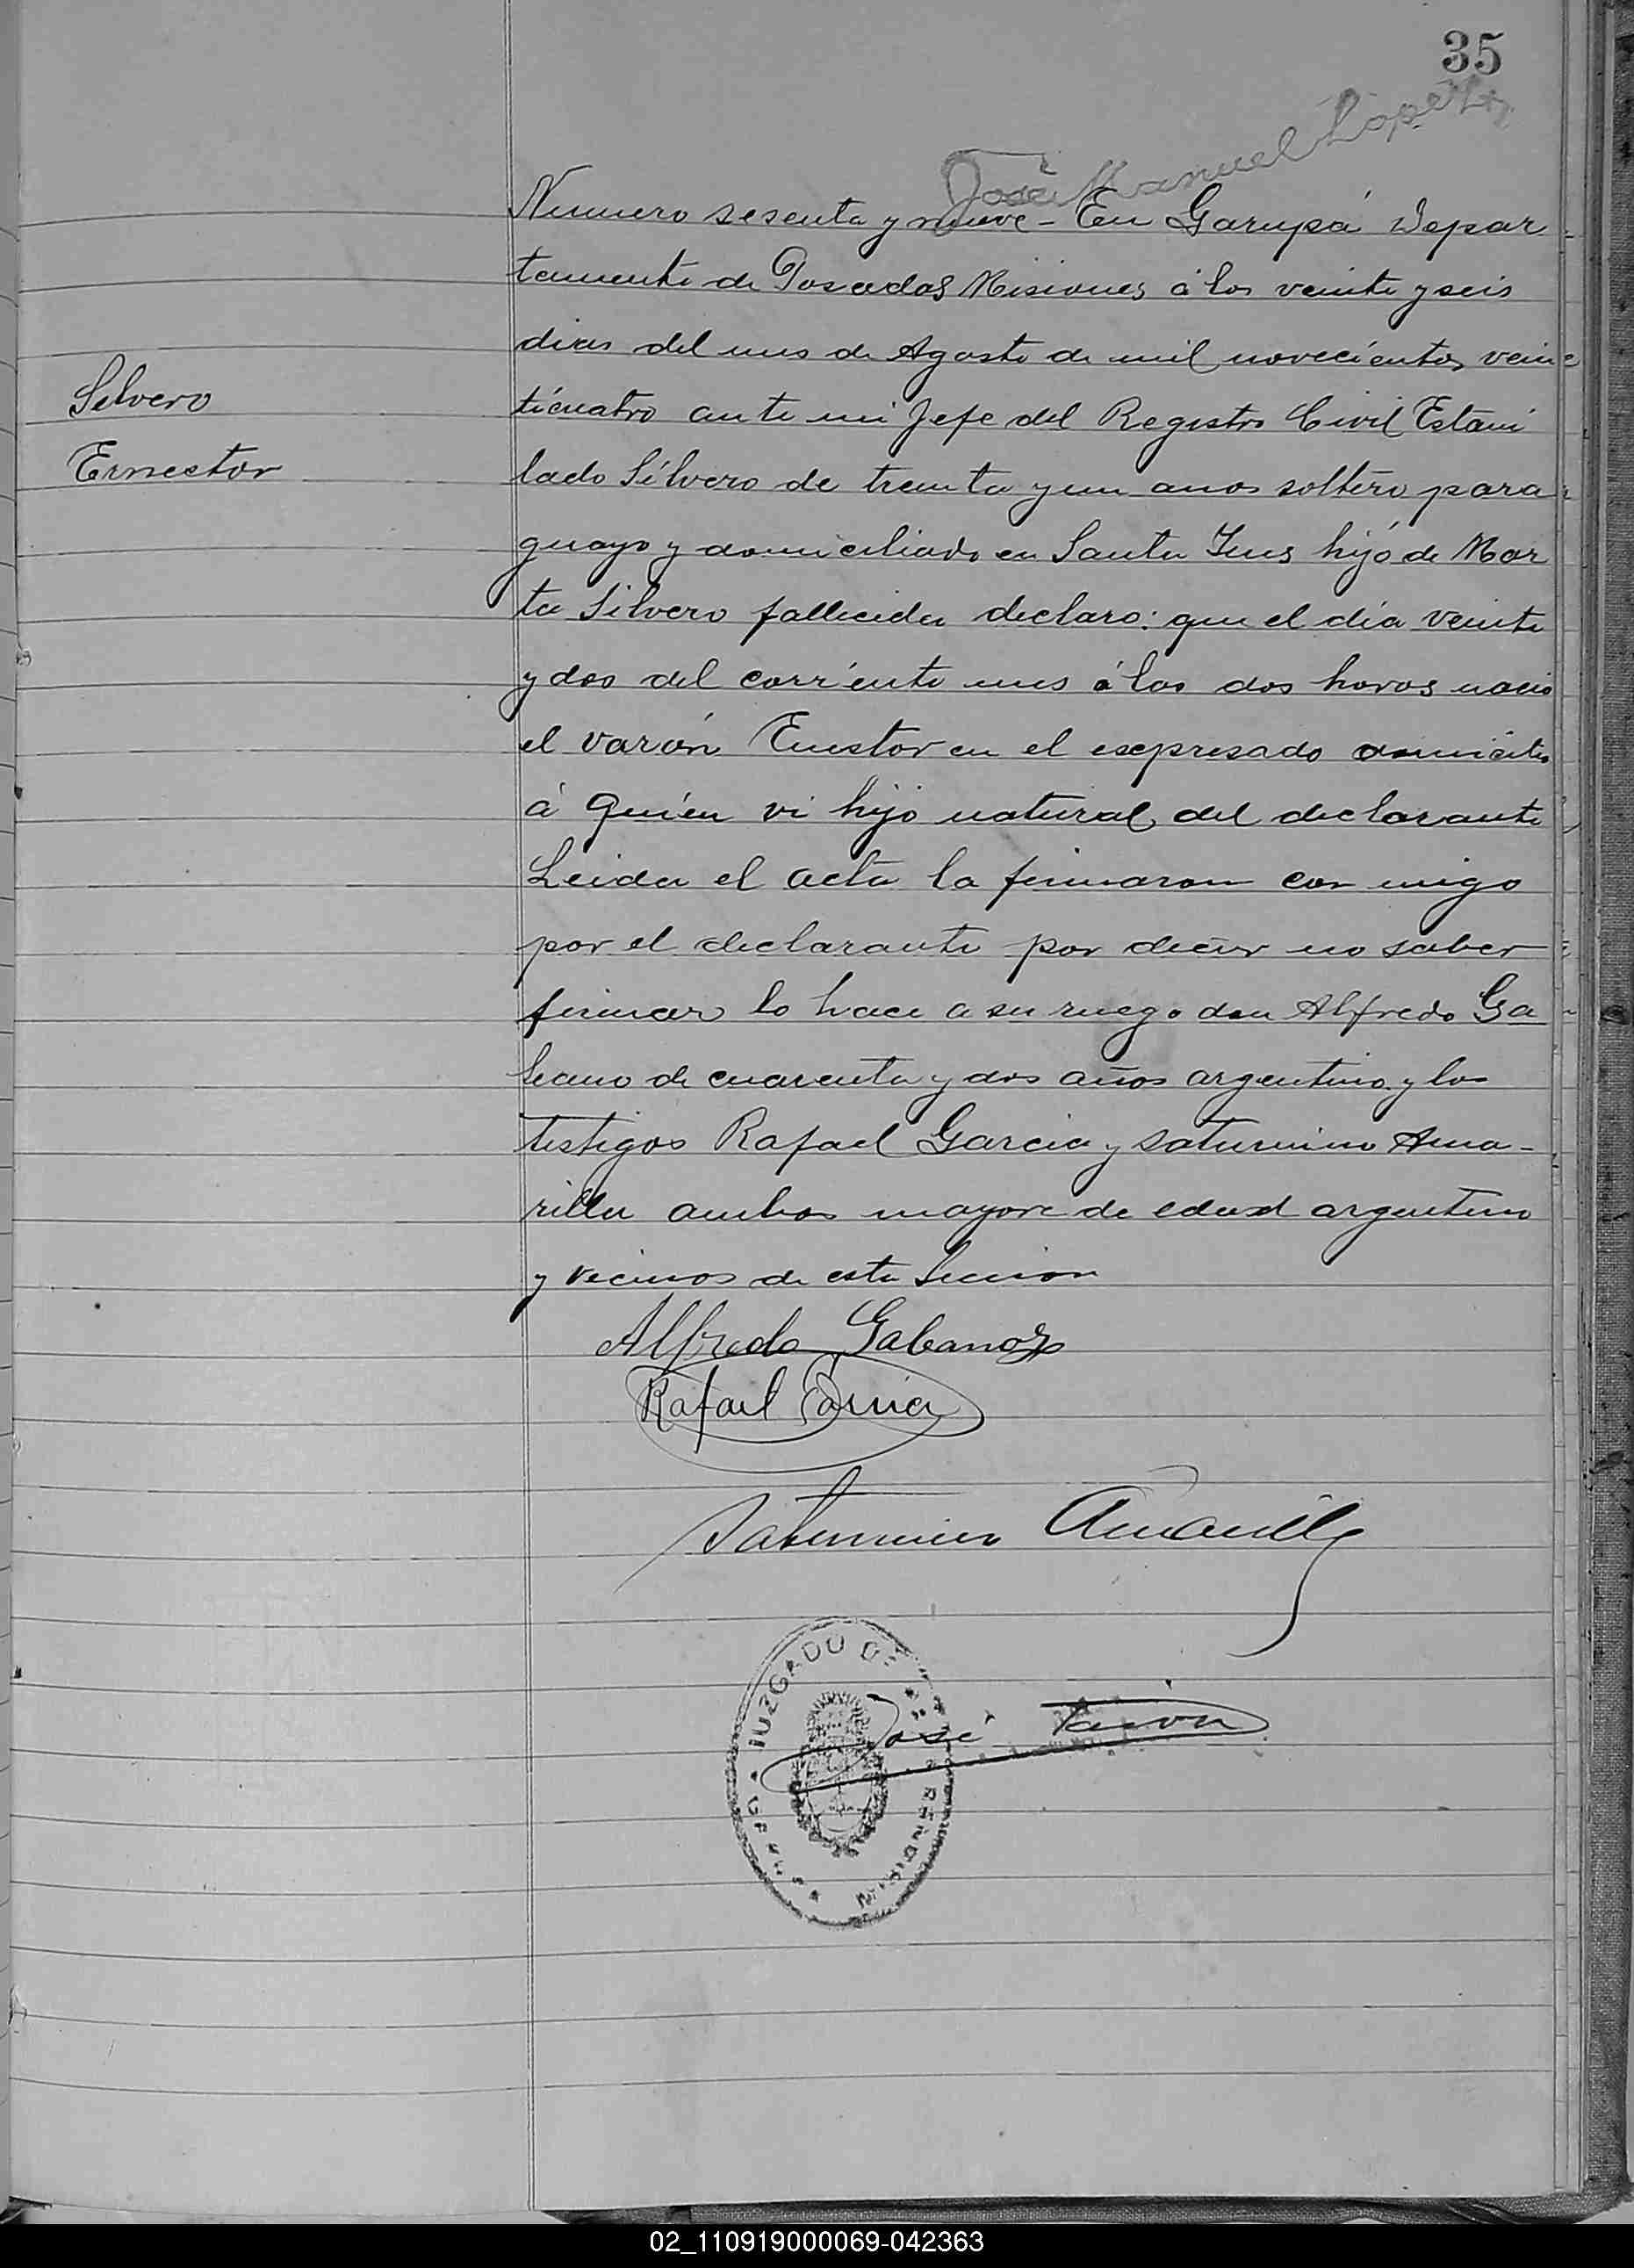 35
José Manuel Lopez
Numero sesenta y nueve - En Garupá Depar
tamento de Posadas Misiones á los veinte y seis
dias del mes de Agosto de mil novecientos vein
Silvero
ticuatro ante mi Jefe del Registro Civil Estani
Ernestor
lado Silvero de treinta y un anos soltero para
guayo y domiciliado en Santa Ines hijo de Mar
ta Silvero fallecida declaro: que el día veinte
y dos del corriente mes á las dos horas nacio
el varón Enestor en el esepresado domicilio
á quien vi hijo natural del declarante
Leida el acta la firmaron con migo
por el declarante por decir no saber
firmar lo hace a su ruego don Alfredo Ga
leano de cuarenta y dos años argentino y los
testigos Rafael Garcia y Saturnino Ama-
rilla ambos mayore de edad argentino
y vecinos de esta Seccion
Alfredo Galeano
Rafael Garcia
Saturnino Amarilla
JUZGADO D
José
02_110919000069-042363